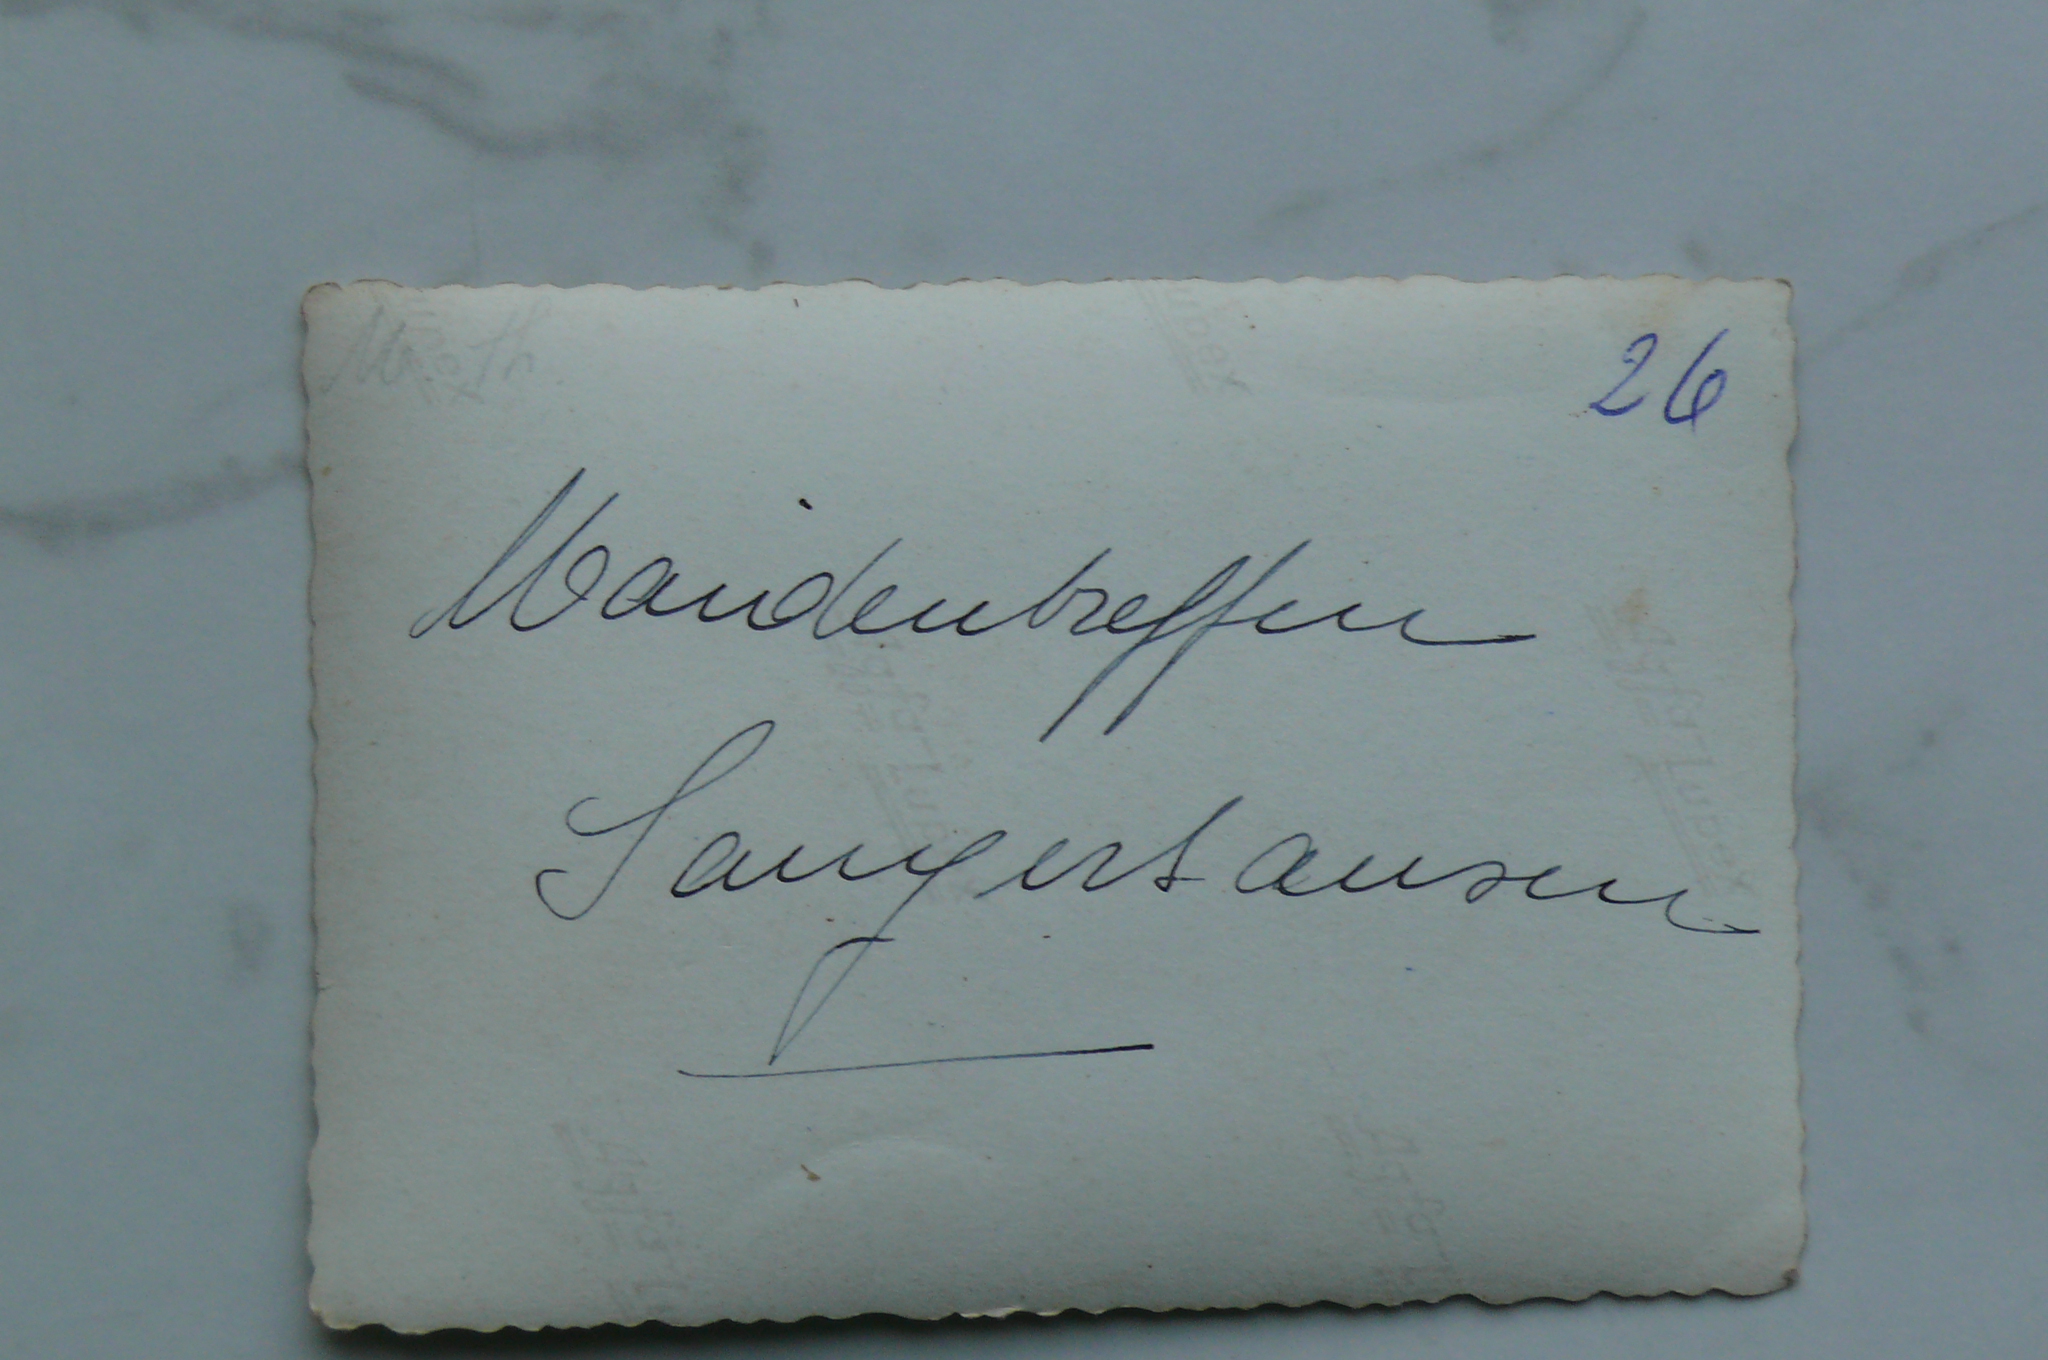 26
Maidentreffen
Sangerhausen